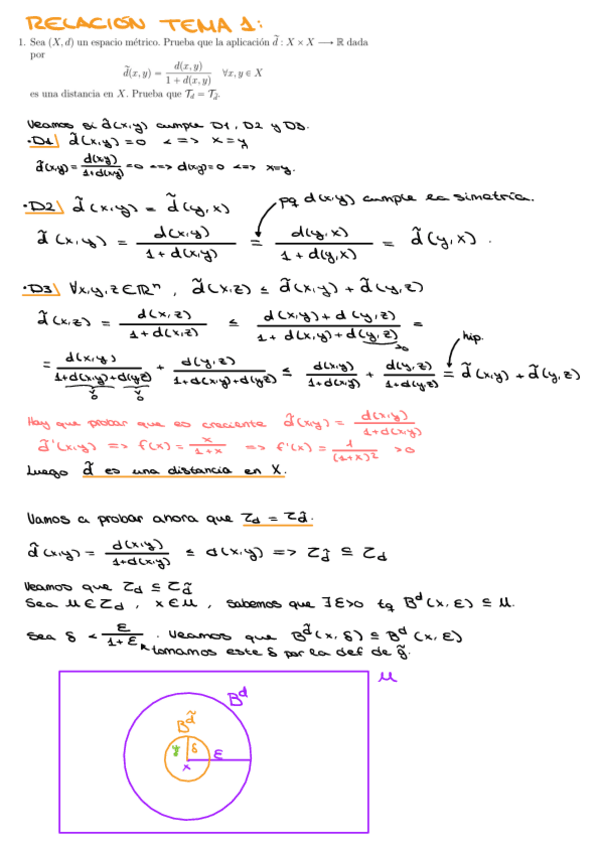 RELACIÓN TEMA 1:
1. Sea (X, d) un espacio métrico. Prueba que la aplicación d̃ : X × X ⟶ ℝ dada
por
d̃(x, y) = d(x, y) / (1 + d(x, y)) ∀x, y ∈ X
es una distancia en X. Prueba que 𝒯_d = 𝒯_d̃.
Veamos si d̃(x,y) cumple D1, D2 y D3.
·D1) d̃(x,y) = 0 <=> x = y
d̃(x,y) = d(x,y) / (1+d(x,y)) = 0 <=> d(x,y) = 0 <=> x = y.
·D2) d̃(x,y) = d̃(y,x) pq d(x,y) cumple la simetría.
d̃(x,y) = d(x,y) / (1 + d(x,y)) = d(y,x) / (1 + d(y,x)) = d̃(y,x).
·D3) ∀x,y,z ∈ ℝⁿ, d̃(x,z) ≤ d̃(x,y) + d̃(y,z)
d̃(x,z) = d(x,z) / (1+d(x,z)) ≤ (d(x,y) + d(y,z)) / (1 + d(x,y) + d(y,z)) =
≥0
hip.
= d(x,y) / (1+d(x,y)+d(y,z)) + d(y,z) / (1+d(x,y)+d(y,z)) ≤ d(x,y) / (1+d(x,y)) + d(y,z) / (1+d(y,z)) = d̃(x,y) + d̃(y,z)
≥0 ≥0
Hay que probar que es creciente d̃(x,y) = d(x,y) / (1+d(x,y))
d̃'(x,y) => f(x) = x / (1+x) => f'(x) = 1 / (1+x)² >0
Luego d̃ es una distancia en X.
Vamos a probar ahora que 𝒯_d = 𝒯_d̃.
d̃(x,y) = d(x,y) / (1+d(x,y)) ≤ d(x,y) => 𝒯_d̃ ⊆ 𝒯_d
Veamos que 𝒯_d ⊆ 𝒯_d̃
Sea u ∈ 𝒯_d, x ∈ u, sabemos que ∃ε>0 tq B^d(x, ε) ⊆ u.
Sea δ < ε / (1+ε). Veamos que B^d̃(x, δ) ⊆ B^d(x, ε)
tomamos este δ por la def de g̃.
u
B^d
B^d̃
y δ ε
x